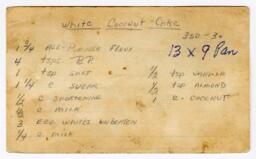 White Coconut Cake
350-30
13 x 9 Pan
1 3/4 All-Purpose Flour
4 tsps B.P.
1 tsp Salt
1 1/4 c Sugar
1/2 c Shortening
c Milk
3 Egg Whites Unbeaten
1/4 c. Milk
1/2 tsp Vanilla
1/2 tsp Almond
1 c. Coconut